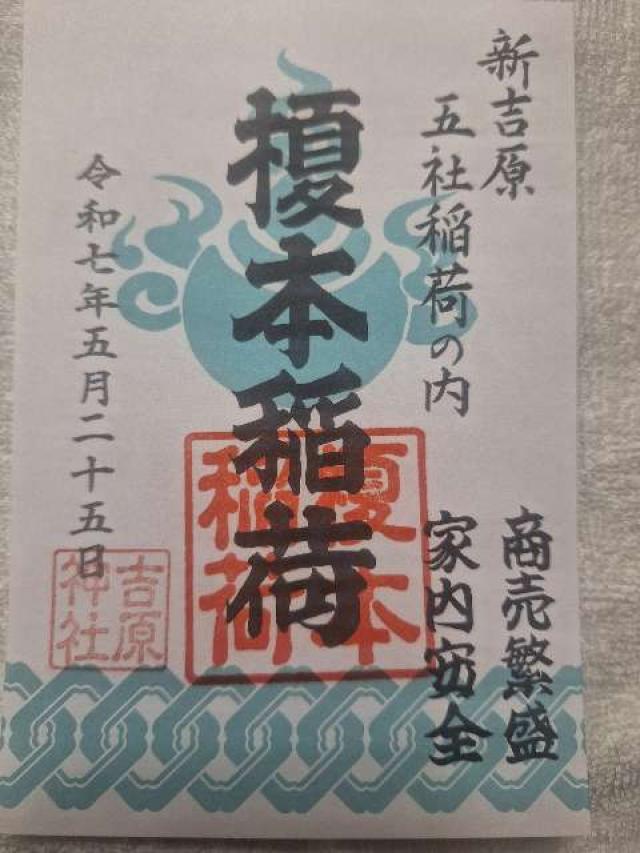 新吉原
五社稲荷の内
商売繁盛
家内安全
榎本稲荷
榎本
稲荷
令和七年五月二十五日
吉原
神社